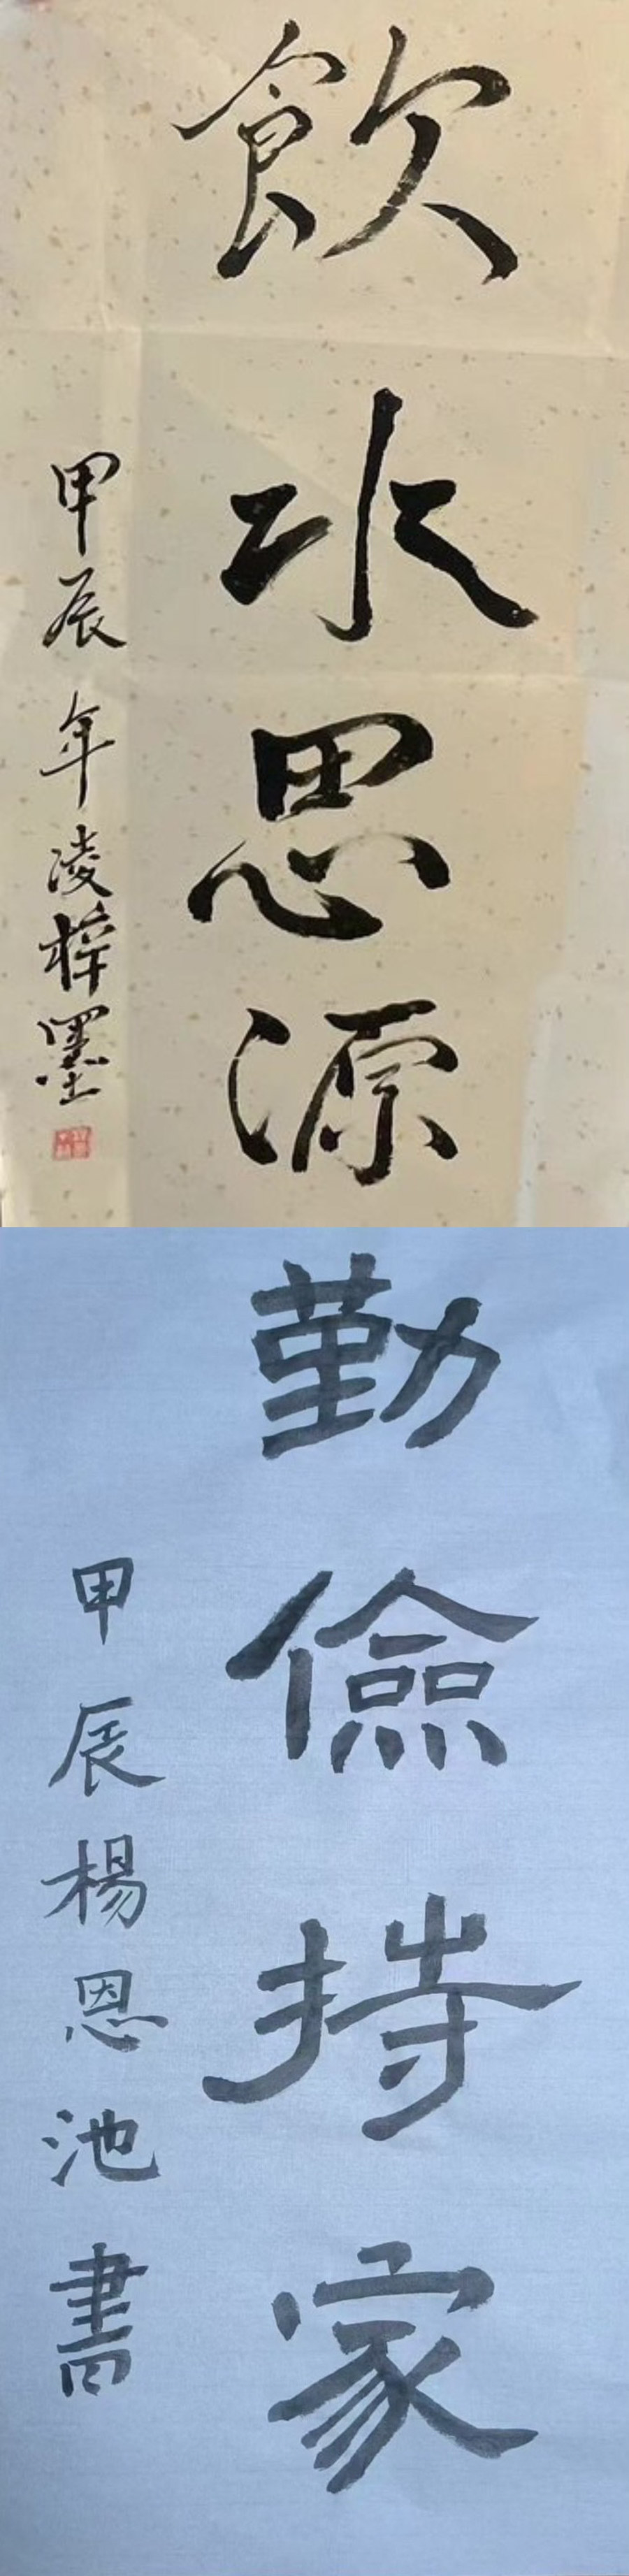 飲水思源
甲辰年凌梓墨
勤儉持家
甲辰楊恩池書